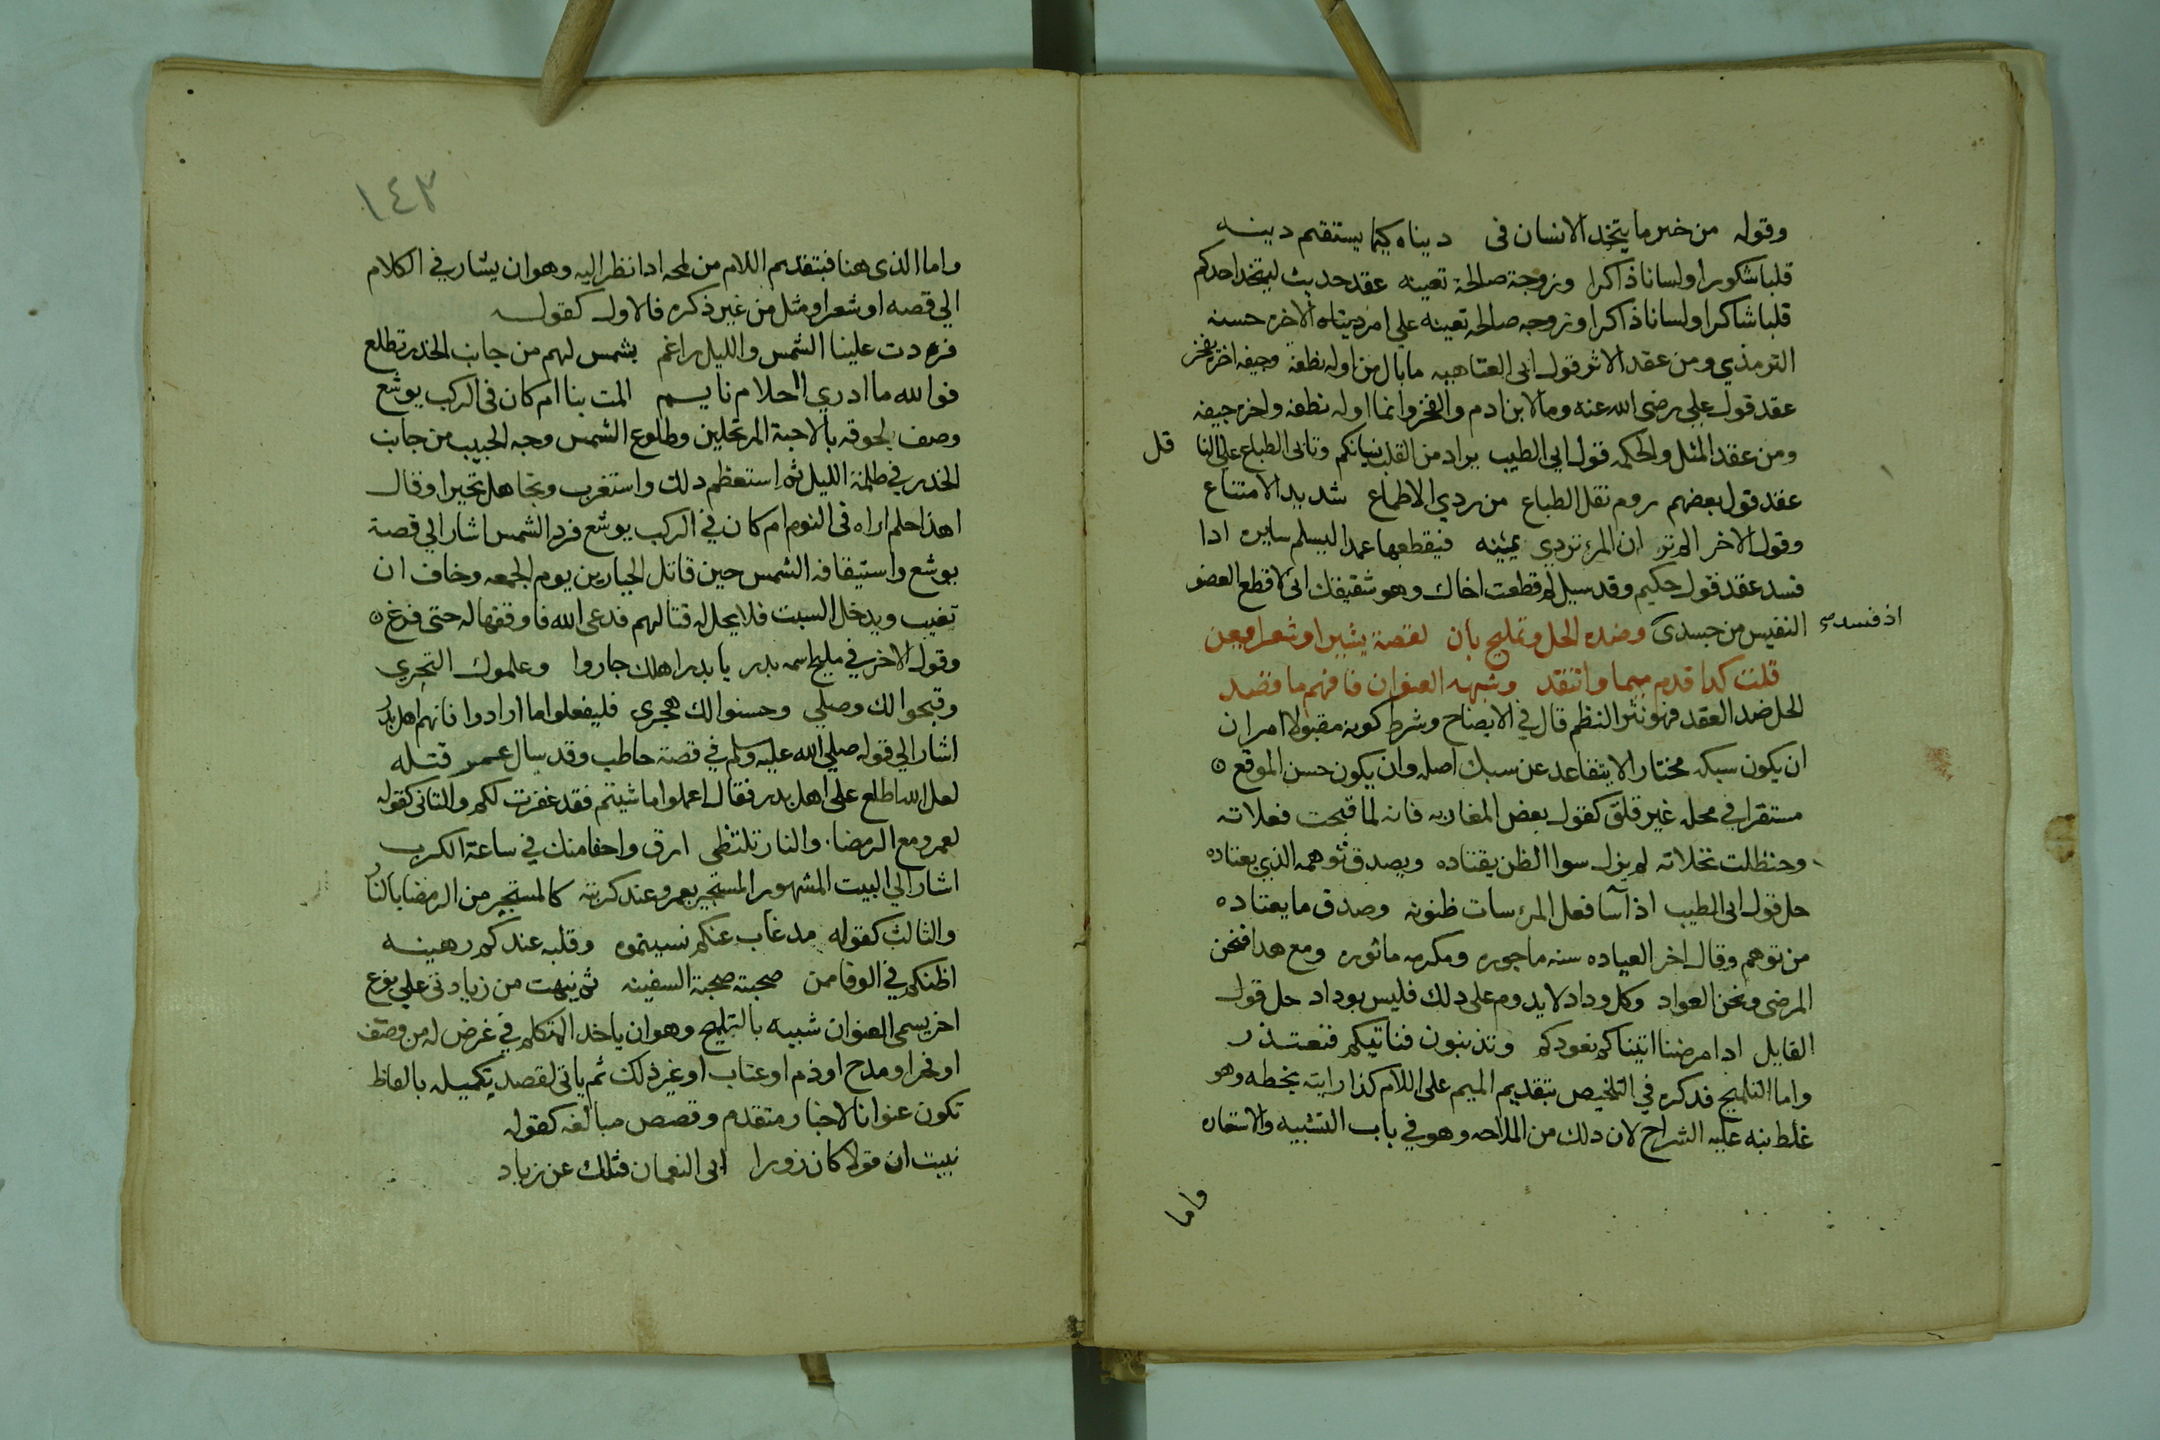 وقوله من خير ما يتخذ الانسان في ديناه كيما يستقيم دينه
قلبا شكورا ولسانا ذاكرا وزوجة صالحة تعينه عقد حديث ليتخذ احدكم
قلبا شاكرا ولسانا ذاكرا وزوجه صالحه تعينه علي امر ديناه الاخره حسنه
الترمذي ومن عقد الاثر قول ابى العتاهيه ما بال من اوله نطفة وجيفه اخره يفخر
عقد قول علي رضى الله عنه وما لابن ادم والفخر وانما اوله نطفه واخره جيفه
ومن عقد المثل والحكمه قول ابى الطيب يراد من القلب نسيانكم وتابى الطباع على النا قل
عقد قول بعضهم روم نقل الطباع من ردي الاطماع شديد الامتناع
وقول الاخر الم تر ان المرء تردي يمينه فيقطعها عمدا ليسلم سايره اذا
فسد عقد قول حكيم وقد سيل لم قطعت اخاك وهو شقيقك انى لاقطع العضو
النفيس من جسدى وضده الحل وتمليح بان لقصة يشير او شعر فعن
اذ فسد صح
قلت كذا قدم ميما وانتقد وشبهه العنوان فافهم ما قصد
الحل ضد العقد فهو نثر النظم قال في الايضاح وشرط كونه مقبولا امران
ان يكون سبكه مختارا لا يتقاعد عن سبك اصله وان يكون حسن الموقع
مستقرا في محله غير قلق كقول بعض المغاربه فانه لما قبحت فعلاته
وحنظلت نخلاته لم يزل سوا الظن يقتاده ويصدق توهمه الذي يعتاده
حل قول ابى الطيب اذا سا فعل المرء سات ظنونه وصدق ما يعتاده
من توهم وقال اخر العياده سنه ماجوره ومكرمه ماثوره ومع هدا فنحن
المرضى ونحن العواد وكل وداد لا يدوم على ذلك فليس بوداد حل قول
القايل ادا مرضنا اتيناكم نعودكم وتذنبون فناتيكم فنعتذر
واما التلميح فدكره في التلخيص بتقديم الميم على اللام كذا رايته بخطه وهو
غلط نبه عليه الشراح لان دلك من الملاحه وهو في باب التشبيه والاستعاره
واما
١٤٣
واما الذى هنا فبتقديم اللام من لمحه ادا نظر اليه وهو ان يشار في الكلام
الي قصه او شعر او مثل من غير ذكره فالاول كقوله
فردت علينا الشمس والليل راغم بشمس لهم من جانب الخدر تطلع
فوالله ما ادري ااحلام نايم المت بنا ام كان فى الركب يوشع
وصف لحوقه بالاحبة المرتحلين وطلوع الشمس وجه الحبيب من جانب
الخدر في ظلمة الليل ثم استعظم دلك واستغرب وتجاهل تحيرا وقال
اهذا حلم اراه فى النوم ام كان في الركب يوشع فرد الشمس اشار الي قصة
يوشع واستيقافه الشمس حين قاتل الجبارين يوم الجمعه وخاف ان
تغيب ويدخل السبت فلا يحل له قتالهم فدعى الله فاوقفها له حتى فرغ
وقول الاخر في مليح اسمه بدر يا بدر اهلك جاروا وعلموك التجري
وقبحوا لك وصلي وحسنوا لك هجري فليفعلوا ما ارادوا فانهم اهل بدر
اشار الي قوله صلي الله عليه وسلم في قصة حاطب وقد سال عمر قتله
لعل الله اطلع على اهل بدر فقال اعملوا ما شيتم فقد غفرت لكم والثانى كقوله
لعمرو مع الرمضا والنار تلتظى ارق واحفا منك في ساعة الكرب
اشار الي البيت المشهور المستجير بعمرو عند كربته كالمستجير من الرمضا بالنار
والثالث كقوله مد غاب عنكم نسيتموه وقلبه عندكم رهينه
اظنكم في الوفا ممن صحبته صحبة السفينه ثم نبهت من زيادتى علي نوع
اخر يسمى العنوان شبيه بالتلميح وهو ان ياخد المتكلم في غرض له من وصف
او فخر او مدح او ذم او عتاب او غير ذلك ثم ياتى لقصد تكميله بالفاظ
تكون عنوانا لاخبار متقدم وقصص مبالغه كقوله
نبيت ان قولا كان زورا اتى النعمان قتلك عن زياد